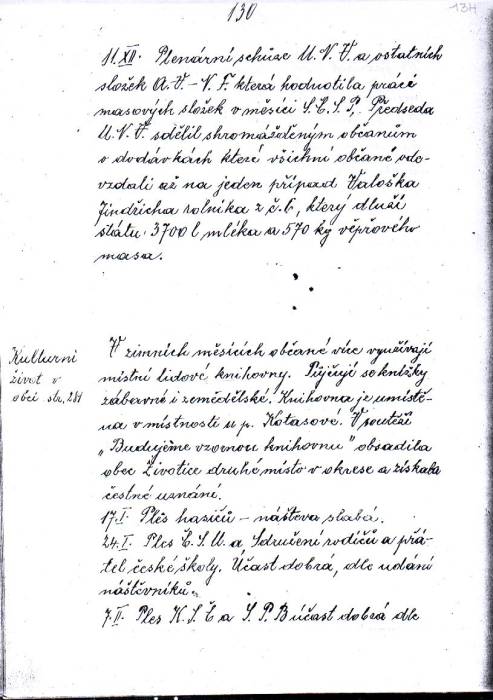 130
134
11.XII. Plenární schůze M.N.V. a ostatních
složek A.V. - N.F. která hodnotila práci
masových složek v měsíci S.Č.S.P., Předseda
M.N.V. sdělil shromážděným občanům
o dodávkách které všichni občané ode-
vzdali až na jeden případ Valoška
Jindřicha rolníka z č.6, který dluží
státu 3700 l mléka a 570 kg vepřového
masa.
Kulturní
život v
obci str. 281
V zimních měsících občané více využívají
místní lidové knihovny. Půjčují se knížky
zábavné i zemědělské. Knihovna je umístě-
na v místnosti u p. Kotasové. V soutěži
„Budujeme vzornou knihovnu" obsadila
obec Životice druhé místo v okrese a získala
čestné uznání.
17.I. Ples hasičů - návštěva slabá.
24.I. Ples Č.S.M. a Sdružení rodičů a přá-
tel české školy. Účast dobrá, dle udání
návštěvníků.
7.II. Ples K.S.Č a S.P.B účast dobrá dle